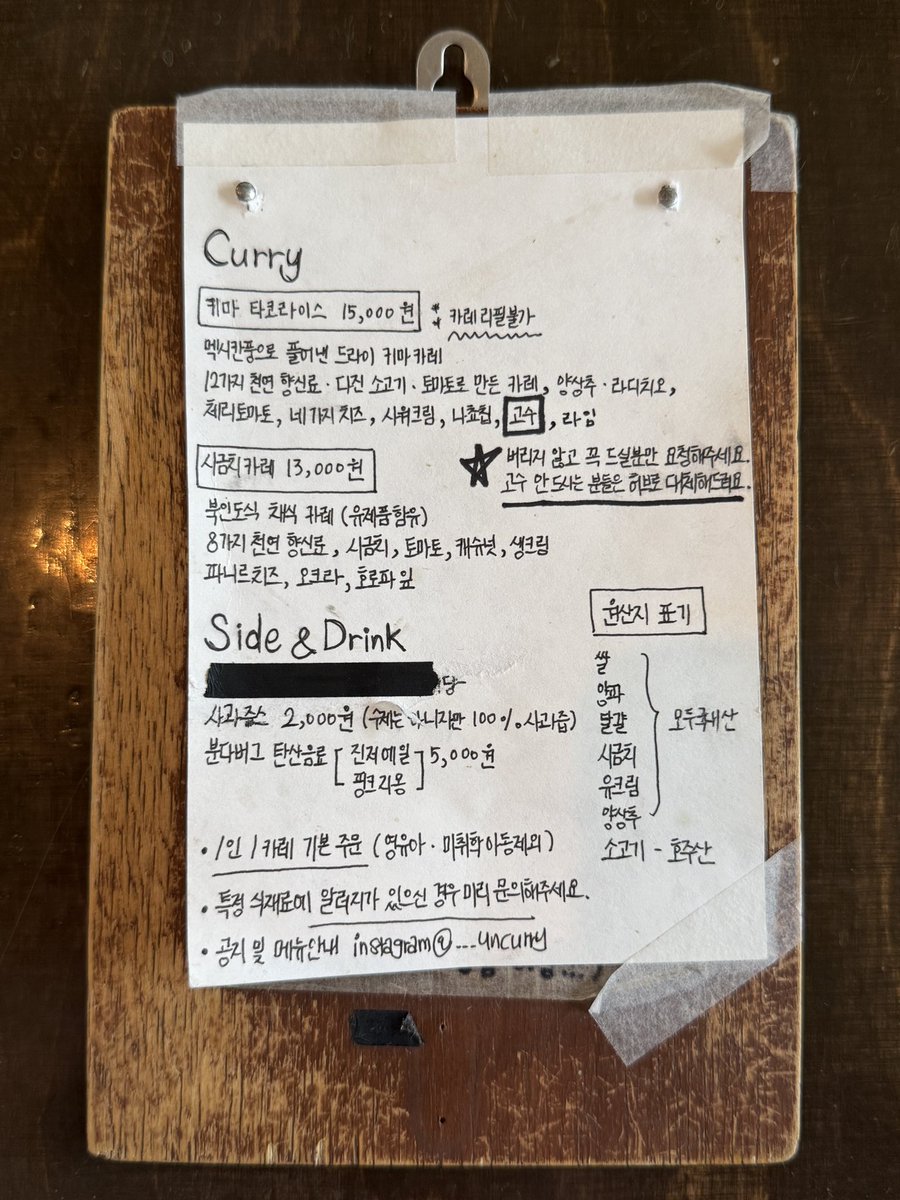 Curry
키마 타코라이스 15,000원
** 카레리필불가
멕시칸풍으로 풀어낸 드라이 키마카레
12가지 천연 향신료·다진 소고기·토마토로 만든 카레, 양상추·라디치오,
체리토마토, 네가지 치즈, 사워크림, 나쵸칩, 고수, 라임
★ 버리지 않고 꼭 드실분만 요청해주세요.
고수 안드시는 분들은 허브로 대체해드려요.
시금치카레 13,000원
북인도식 채식 카레 (유제품함유)
8가지 천연 향신료, 시금치, 토마토, 캐슈넛, 생크림
파니르치즈, 오크라, 호로파잎
Side & Drink
당
사과쥬스 2,000원 (수제는 아니지만 100% 사과즙)
분다버그 탄산음료 [진저에일 핑크자몽] 5,000원
원산지 표기
쌀
양파
달걀
시금치
유크림
양상추
모두국내산
소고기 - 호주산
• 1인 1카레 기본 주문 (영유아·미취학아동제외)
• 특정 식재료에 알러지가 있으신 경우 미리 문의해주세요.
• 공지 및 메뉴안내 instagram@___uncurry